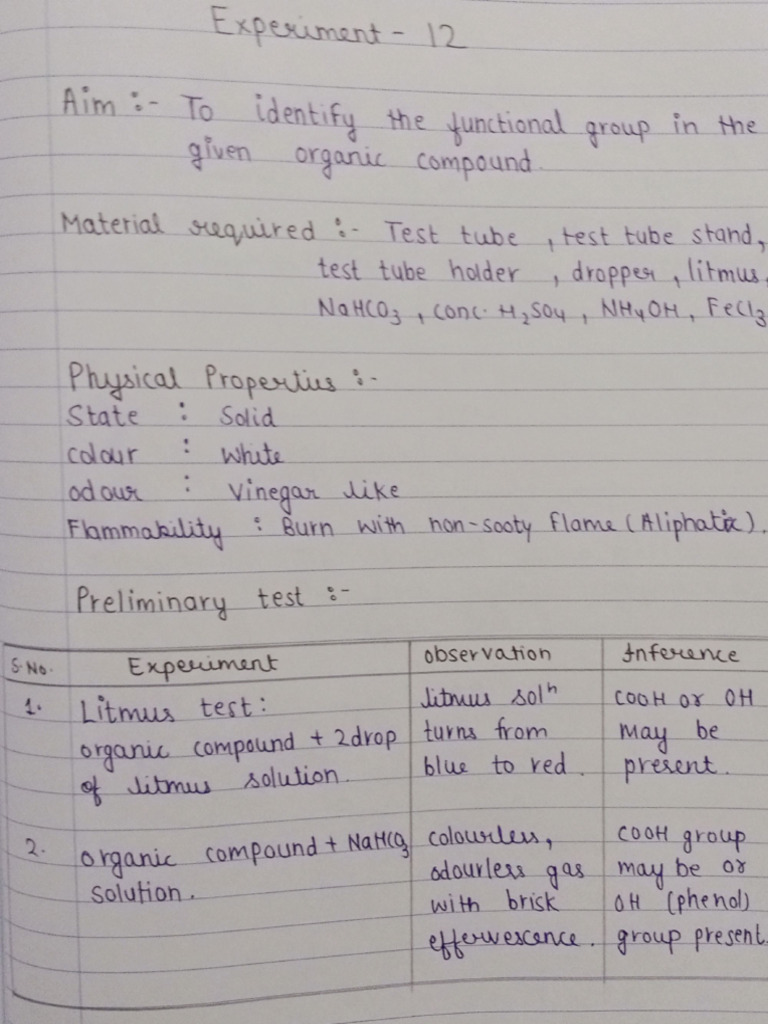 Experiment - 12
Aim :- To identify the functional group in the
given organic compound.
Material required :- Test tube , test tube stand,
test tube holder , dropper , litmus,
NaHCO3 , conc. H2SO4 , NH4OH, FeCl3
Physical Properties :-
State : Solid
colour : White
odour : Vinegar like
Flammability : Burn with non-sooty flame (Aliphatic).
Preliminary test :-
S.No. Experiment observation Inference
1. Litmus test: litmus solⁿ COOH or OH
organic compound + 2drop turns from may be
of litmus solution. blue to red. present.
2. organic compound + NaHCO3 colourless, COOH group
solution. odourless gas may be or
with brisk OH (phenol)
effervescence. group present.